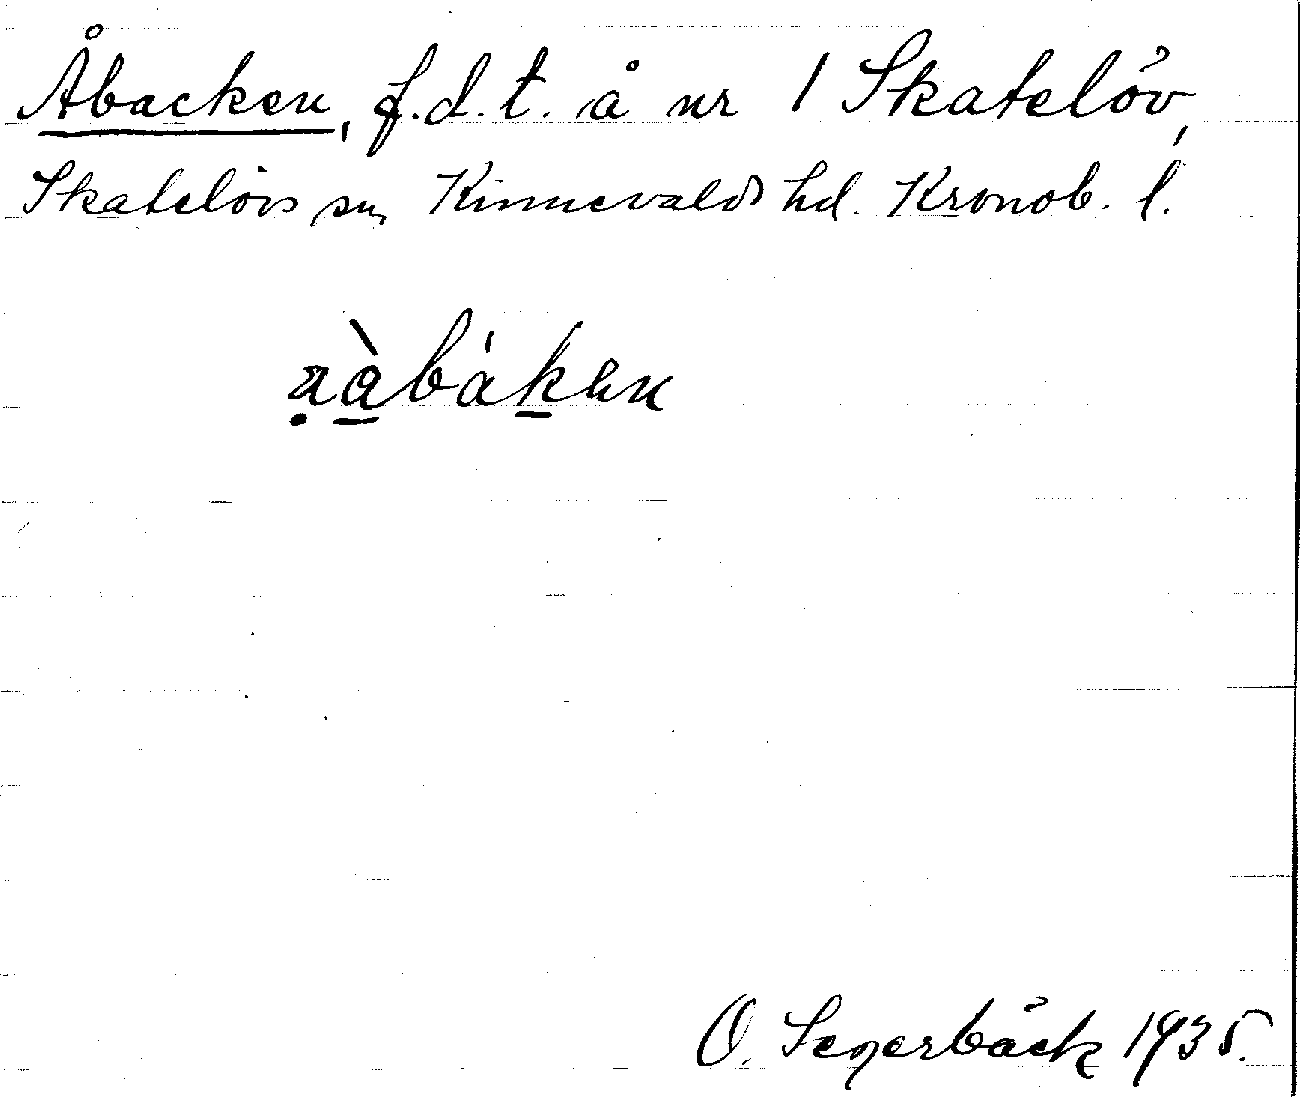 Åbacken, f.d.t. å nr 1 Skatelöv,
Skatelövs sn, Kinnevalds hd. Kronob. l.
ạà̱báḵen
O. Segerbäck 1935.